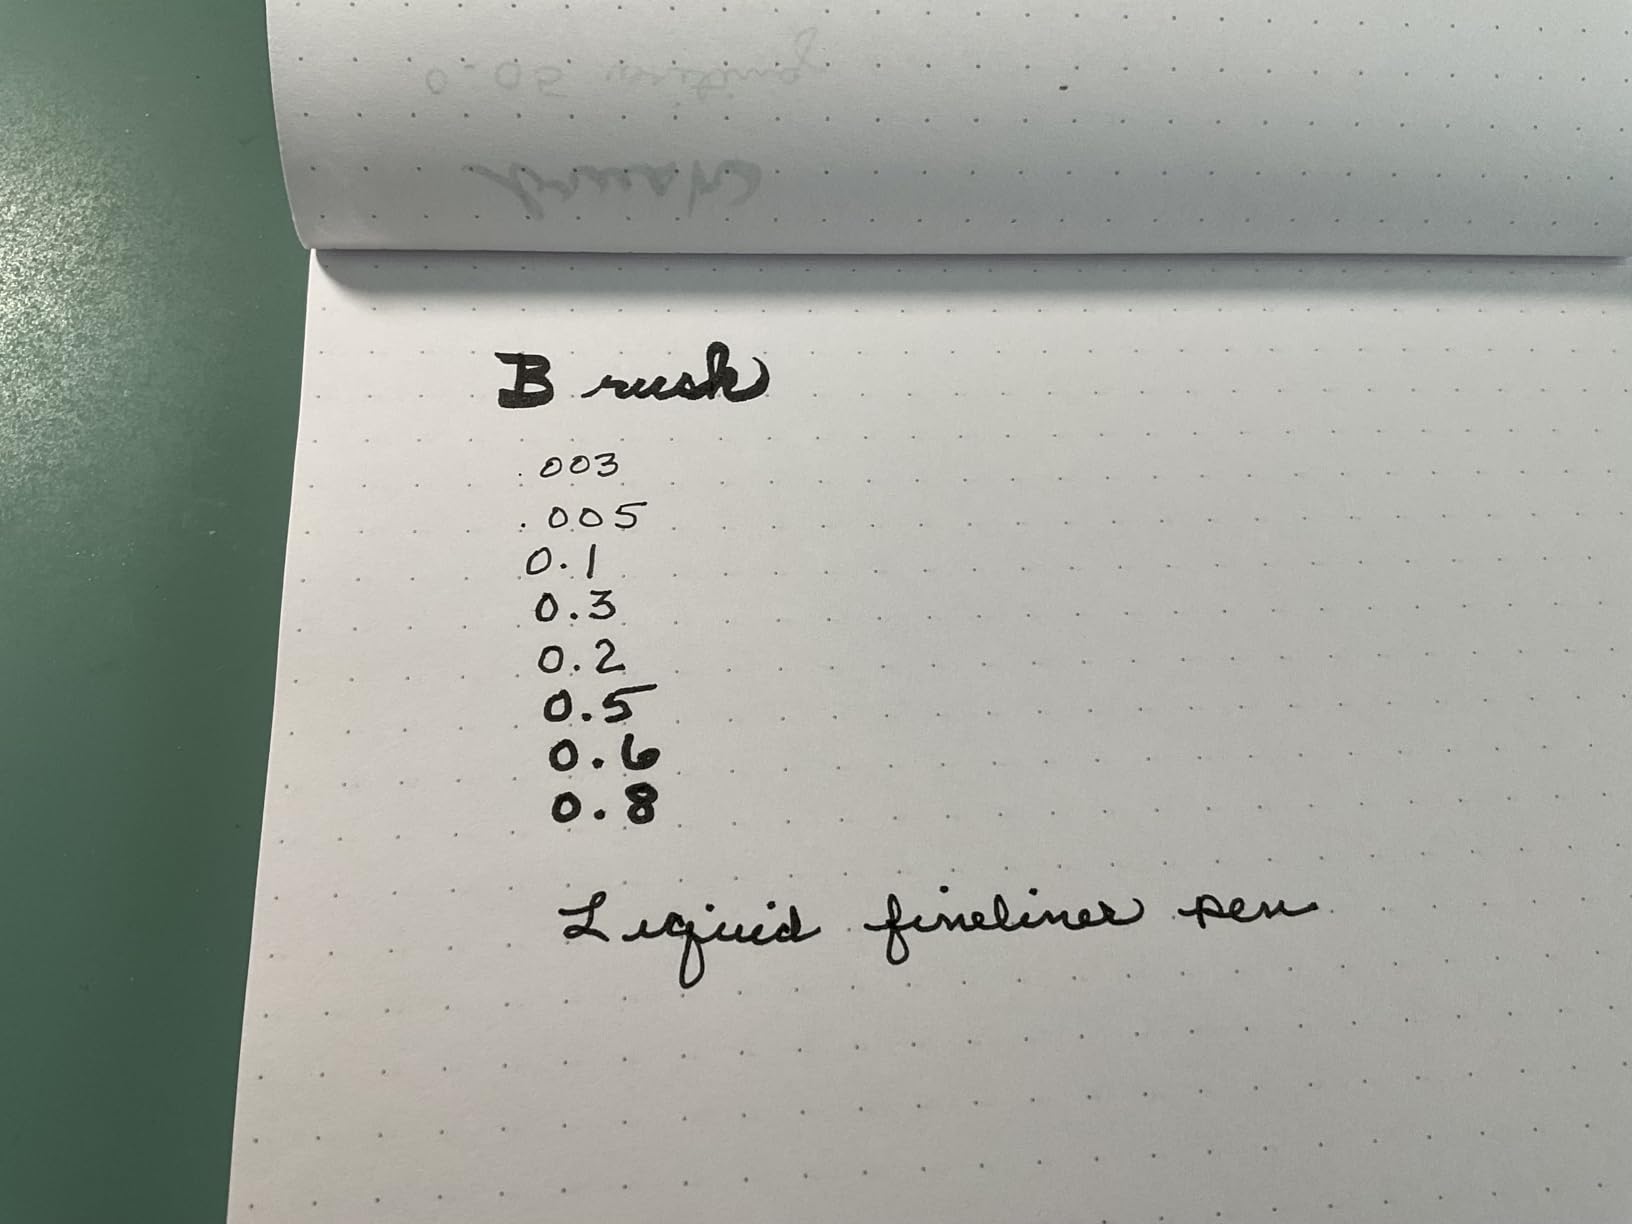 Brush
.003
.005
0.1
0.3
0.2
0.5
0.6
0.8
Liquid fineliner pen